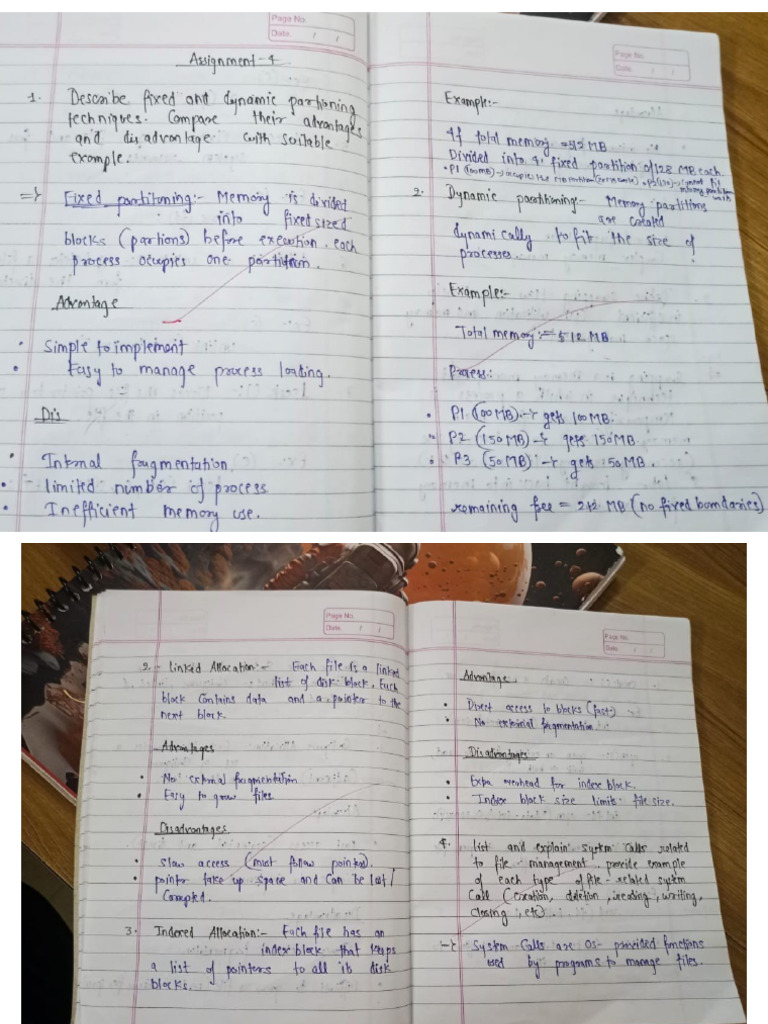 Page No.
Date. / /
Assignment-4
1. Describe fixed and dynamic partioning
techniques. Compare their advantages
and disadvantage with suitable
example.
=> Fixed partitioning:- Memory is divided
into fixed sized
blocks (partions) before execution. each
process occupies one partition.
Advantage
• Simple to implement
• Easy to manage process loading.
Dis
• Internal fragmentation.
• limited number of process
• Inefficient memory use.
Page No.
Date. / /
Example:-
If total memory = 512 MB
Divided into 4 fixed partition of 128 MB each.
2. Dynamic partitioning:- Memory partitions
are created
dynamically to fit the size of
processes.
Example:-
Total memory:= 512 MB
Process:
• P1 (100MB) → gets 100MB.
• P2 (150MB) → gets 150MB.
• P3 (50MB) → gets 50MB.
remaining free = 212 MB (no fixed boundaries)
Page No.
Date. / /
2.- Linkid Allocation:- Each file is a linked
list of disk block. Each
block contains data and a pointer to the
next block.
Advantages
• No external fragmentation
• Easy to grow files
Disadvantages
• slow access (must follow pointer).
• pointer take up space and can be lost/
Corrupted.
3. Indexed Allocation:- Each file has an
index block that keeps
a list of pointers to all its disk
blocks.
Page No.
Date. / /
Advantage
• Direct access to blocks (fast)
• No external fragmentation
Disadvantages
• Extra overhead for index block.
• Index block size limits file size.
4. list and explain system calls related
to file management. provide example
of each type of file-related system
Call (creation, deletion, reading, writing,
closing, etc)
→ System calls are os- provided functions
used by programs to manage files.